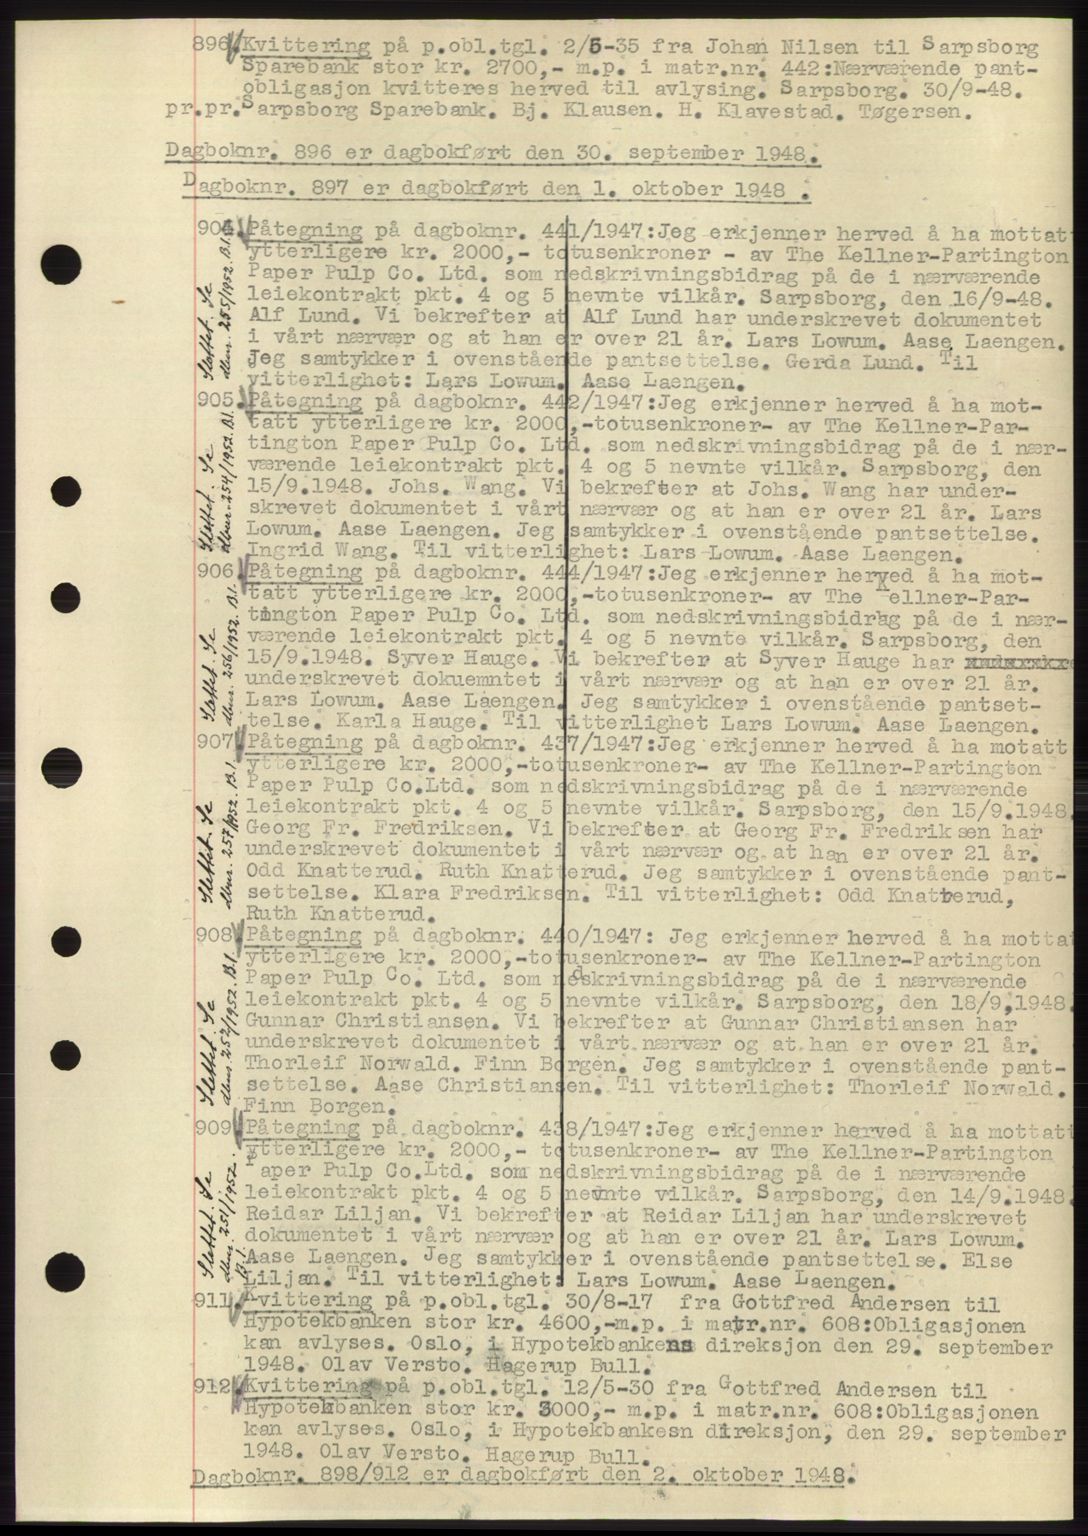 896. Kvittering på p.obl.tgl. 2/5-35 fra Johan Nilsen til Sarpsborg
Sparebank stor kr. 2700,- m.p. i matr.nr. 442:Nærværende pant-
obligasjon kvitteres herved til avlysing. Sarpsborg. 30/9-48.
pr.pr.Sarpsborg Sparebank. Bj. Klausen. H. Klavestad. Tøgersen.
Dagboknr. 896 er dagbokført den 30. september 1948.
Dagboknr. 897 er dagbokført den 1. oktober 1948 .
904. Påtegning på dagboknr. 441/1947:Jeg erkjenner herved å ha mottatt
ytterligere kr. 2000,- totusenkroner - av The Kellner-Partington
Paper Pulp Co. Ltd. som nedskrivningsbidrag på de i nærværende
leiekontrakt pkt. 4 og 5 nevnte vilkår. Sarpsborg, den 16/9-48.
Alf Lund. Vi bekrefter at Alf Lund har underskrevet dokumentet
i vårt nærvær og at han er over 21 år. Lars Lowum. Aase Laengen.
Jeg samtykker i ovenstående pantsettelse. Gerda Lund. Til
vitterlighet: Lars Lowum. Aase Laengen.
Slettet. Se
dbnr. 255/1952. B.1.
905. Påtegning på dagboknr. 442/1947:Jeg erkjenner herved å ha mot-
tatt ytterligere kr. 2000,-totusenkroner- av The Kellner-Par-
tington Paper Pulp Co. Ltd. som nedskrivningsbidrag på de i nær-
værende leiekontrakt pkt. 4 og 5 nevnte vilkår. Sarpsborg, den
15/9.1948. Johs. Wang. Vi bekrefter at Johs. Wang har under-
skrevet dokumentet i vårt nærvær og at han er over 21 år. Lars
Lowum. Aase Laengen. Jeg samtykker i ovenstående pantsettelse.
Ingrid Wang. Til vitterlighet: Lars Lowum. Aase Laengen.
Slettet. Se
dbnr. 254/1952. B.1.
906. Påtegning på dagboknr. 444/1947:Jeg erkjenner herved å ha mot-
tatt ytterligere kr. 2000,-totusenkroner- av The Kellner-Par-
tington Paper Pulp Co. Ltd. som nedskrivningsbidrag på de i nær-
værende leiekontrakt pkt. 4 og 5 nevnte vilkår. Sarpsborg, den
15/9.1948. Syver Hauge. Vi bekrefter at Syver Hauge har
underskrevet dokuemntet i vårt nærvær og at han er over 21 år.
Lars Lowum. Aase Laengen. Jeg samtykker i ovenstående pantset-
telse. Karla Hauge. Til vitterlighet Lars Lowum. Aase Laengen.
Slettet. Se
dbnr. 256/1952. B.1.
907. Påtegning på dagboknr. 437/1947:Jeg erkjenner herved å ha motatt
ytterligere kr. 2000,-totusenkroner- av The Kellner-Partington
Paper Pulp Co.Ltd. som nedskrivningsbidrag på de i nærværende
leiekontrakt pkt. 4 og 5 nevnte vilkår. Sarpsborg, den 15/9.1948.
Georg Fr. Fredriksen. Vi bekrefter at Georg Fr. Fredriksen har
underskrevet dokumentet i vårt nærvær og at han er over 21 år.
Odd Knatterud. Ruth Knatterud. Jeg samtykker i ovenstående pant-
settelse. Klara Fredriksen. Til vitterlighet: Odd Knatterud,
Ruth Knatterud.
Slettet. Se
dbnr. 257/1952. B.1.
908. Påtegning på dagboknr. 440/1947: Jeg erkjenner herved å ha mottat
ytterligere kr. 2000,-totusenkroner- av The Kellner-Partington
Paper Pulp Co. Ltd. som nedskrivningsbidrag på de i nærværende
leiekontrakt pkt. 4 og 5 nevnte vilkår. Sarpsborg, den 18/9,1948.
Gunnar Christiansen. Vi bekrefter at Gunnar Christiansen har
underskrevet dokumentet i vårt nærvær og at han er over 21 år.
Thorleif Norwald. Finn Borgen. Jeg samtykker i ovenstående pant-
settelse. Aase Christiansen. Til vitterlighet: Thorleif Norwald.
Finn Borgen.
Slettet. Se
909. Påtegning på dagboknr. 438/1947:Jeg erkjenner herved å ha mottatt
ytterligere kr. 2000,- totusenkroner- av The Kellner-Partington
Paper Pulp Co.Ltd. som nedskrivningsbidrag på de i nærværende
leiekontrakt pkt. 4 og 5 nevnte vilkår. Sarpsborg, den 14/9.1948.
Reidar Liljan. Vi bekrefter at Reidar Liljan har underskrevet
dokumentet i vårt nærvær og at han er over 21 år. Lars Lowum.
Aase Laengen. Jeg samtykker i ovenstående pantsettelse. Else
Liljan. Til vitterlighet: Lars Lowum. Aase Laengen.
Slettet. Se
dbnr. 251/1952.
B.1.
911. Kvittering på p.obl.tgl. 30/8-17 fra Gottfred Andersen til
Hypotekbanken stor kr. 4600,-m.p. i matr.nr. 608:Obligasjonen
kan avlyses. Oslo, i Hypotekbankens direksjon den 29. september
1948. Olav Versto. Hagerup Bull.
912. Kvittering på p.obl.tgl. 12/5-30 fra Gottfred Andersen til
Hypotekbanken stor kr. 3000,- m.p. i matr.nr. 608:Obligasjonen
kan avlyses. Oslo, i Hypotekbankesn direksjon, den 29. september
1948. Olav Versto. Hagerup Bull.
Dagboknr. 898/912 er dagbokført den 2. oktober 1948.